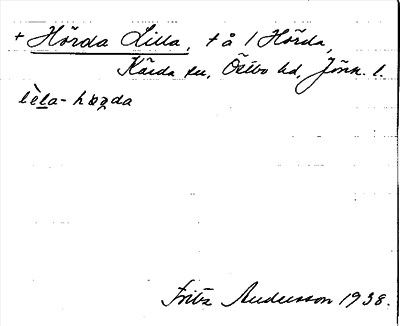 + Hörda Lilla, t å / Hörda,
Kärda sn, Östbo hd, Jönk. l.
lèla - hoɐda
Fritz Andersson 1938.